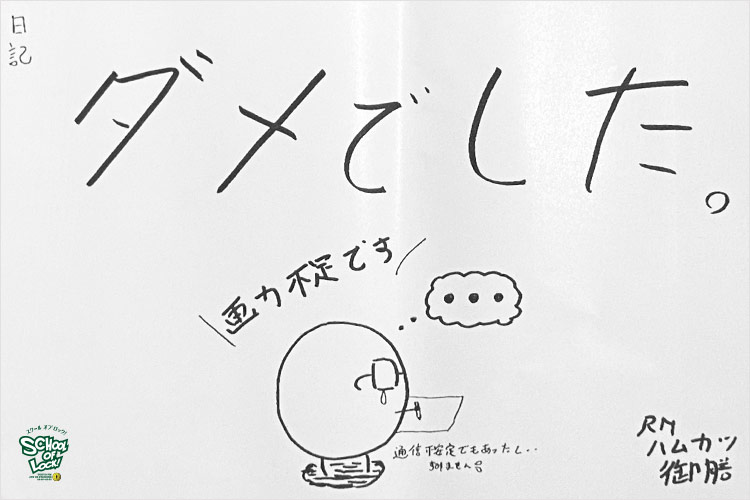 日記
ダメでした。
画力不定です
...
通信不安定でもあったし..
RN
ハムカツ
御膳
スクール オブ ロック!
SCHOOL
OF
LOCK!